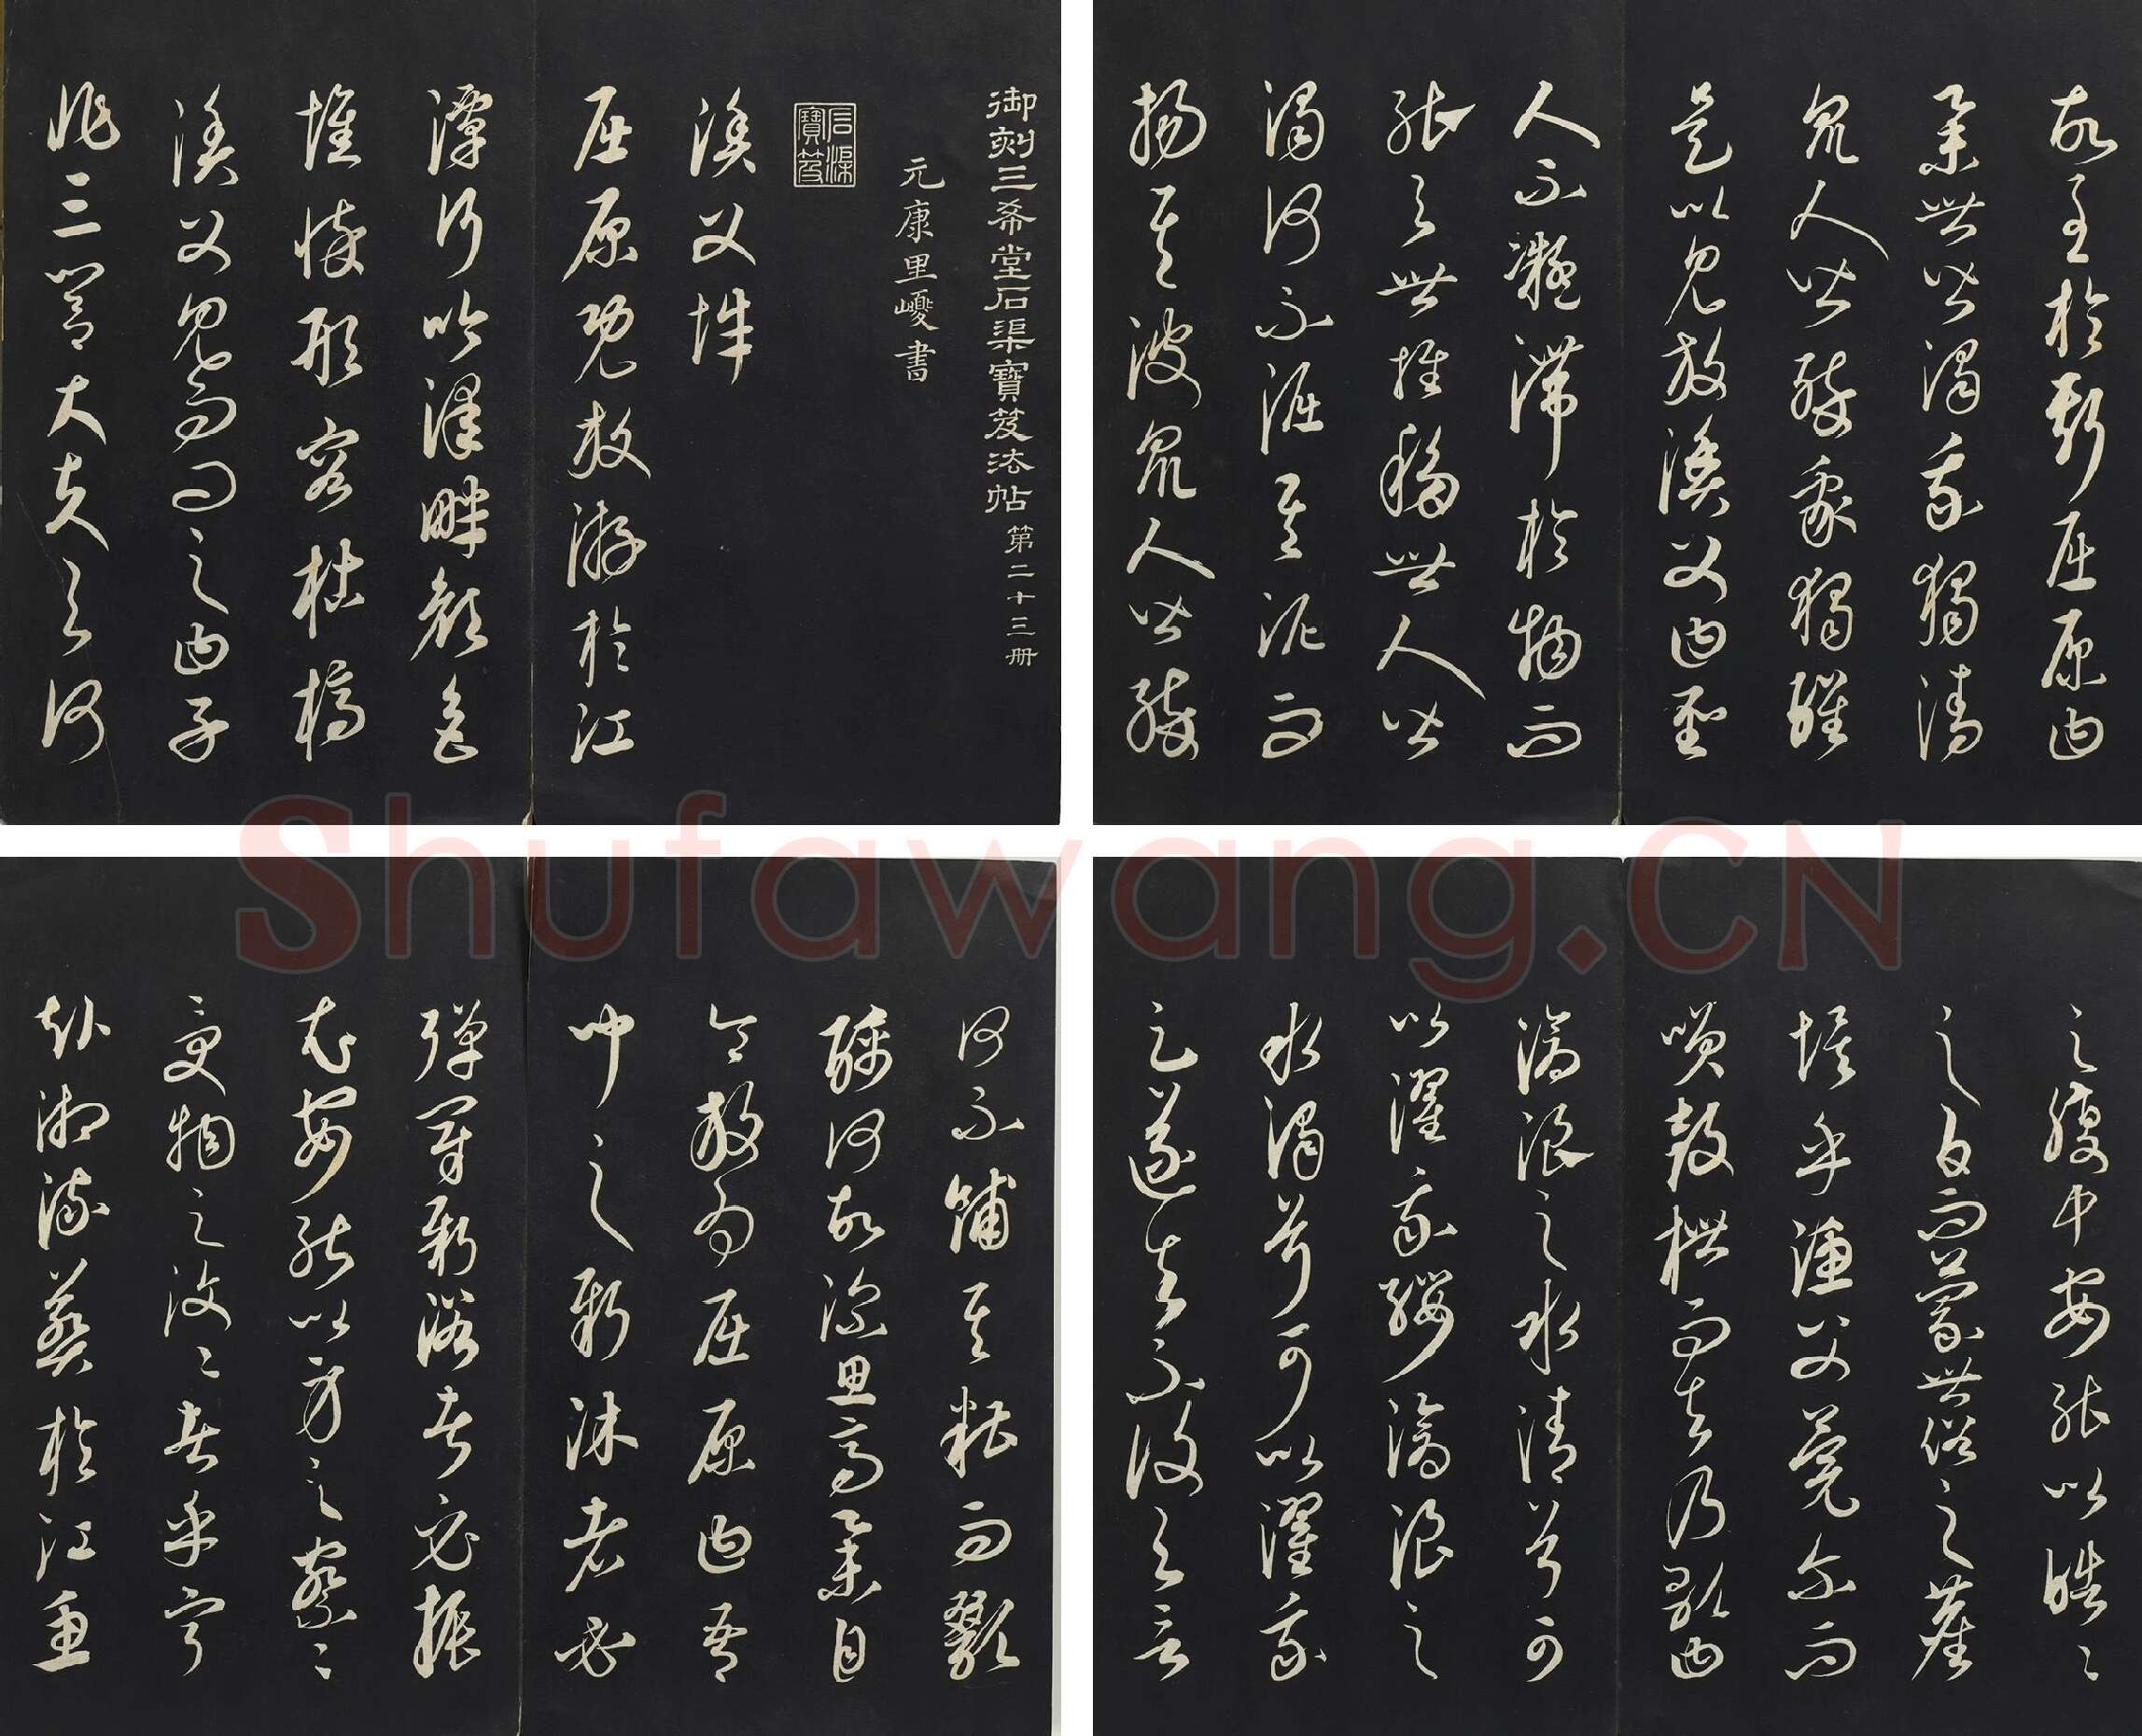 御刻三希堂石渠寶笈法帖第二十三册
元康里巙書
石渠寶笈
漁父辭
屈原既放游於江
潭行吟澤畔顏色
憔悴形容枯槁
漁父見而問之曰子
非三閭大夫與何
故至於斯屈原曰
舉世皆濁我獨清
衆人皆醉我獨醒
是以見放漁父曰聖
人不凝滯於物而
能與世推移世人皆
濁何不淈其泥而
揚其波衆人皆醉
何不餔其糟而歠
醨何故深思高舉自
令放為屈原曰吾
聞之新沐者必
彈冠新浴者必振
衣安能以身之察〻
受物之汶〻者乎寧
赴湘流葬於江魚
之腹中安能以皓〻
之白而蒙世俗之塵
埃乎漁父莞爾而
笑鼓枻而去乃歌曰
滄浪之水清兮可
以濯我纓滄浪之
水濁兮可以濯我
足遂去不復與言
Shufawang.CN